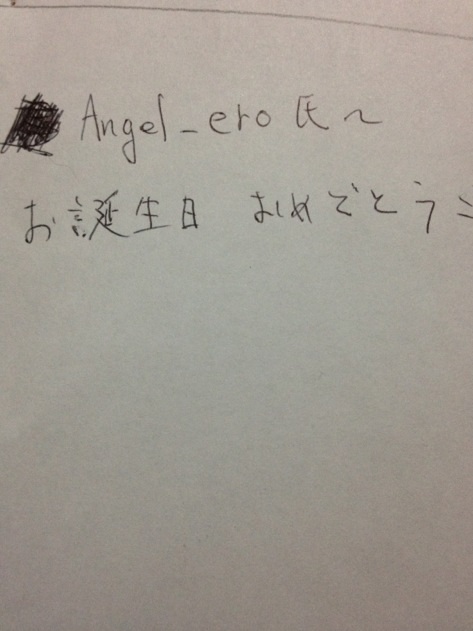 Angel_ero 氏へ
お誕生日 おめでとう